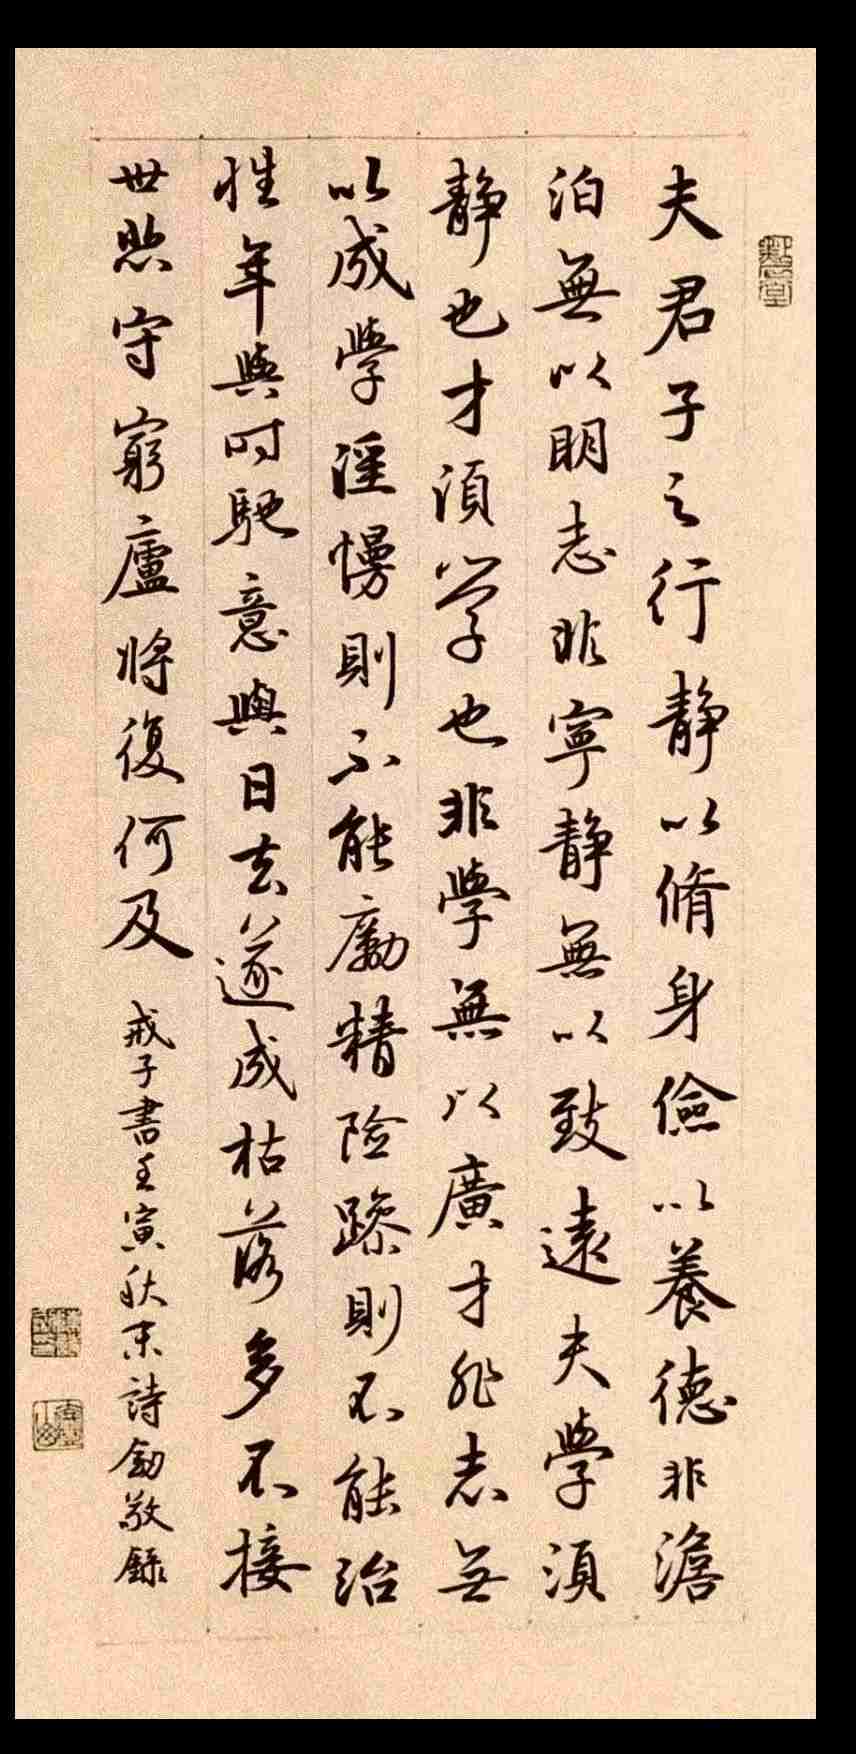 夫君子之行静以脩身儉以養德非澹
泊無以明志非寧静無以致遠夫學須
静也才須学也非學無以廣才非志無
以成學淫慢則不能勵精险躁則不能治
性年與时馳意與日去遂成枯落多不接
世悲守窮廬將復何及
戒子書壬寅秋末詩劍敬録